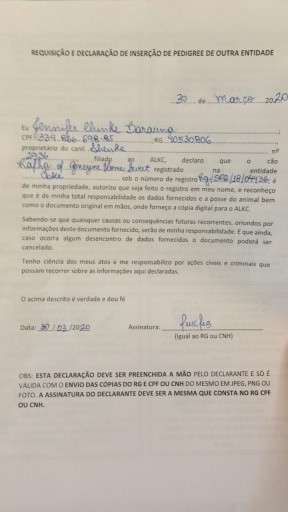 REQUISIÇÃO E DECLARAÇÃO DE INSERÇÃO DE PEDIGREE DE OUTRA ENTIDADE
30 de março 2020
Eu Jennifer Slunke Barauna,
CPF RG 40530806
proprietário do canil Slunke, nº
2936 filiado ao ALKC, declaro que o cão
Kafka of Home Secret registrado na entidade
sob o número de registro, é
de minha propriedade, autorizo que seja feito o registro em meu nome, e reconheço
que é de minha total responsabilidade os dados fornecidos e a posse do animal bem
como o documento original em mãos, onde forneço a cópia digital para o ALKC.
Sabendo-se que quaisquer causas ou consequências futuras recorrentes, oriundos por
informações deste documento fornecido, serão de minha responsabilidade. E que ainda,
caso ocorra algum desencontro de dados fornecidos o documento poderá ser
cancelado.
Tenho ciência dos meus atos e me responsabilizo por ações cíveis e criminais que
possam recorrer sobre as informações aqui declaradas.
O acima descrito é verdade e dou fé
Data: 30/03/2020 Assinatura:
(Igual ao RG ou CNH)
OBS: ESTA DECLARAÇÃO DEVE SER PREENCHIDA A MÃO PELO DECLARANTE E SÓ É
VÁLIDA COM O ENVIO DAS CÓPIAS DO RG E CPF OU CNH DO MESMO EM JPEG, PNG OU
FOTO. A ASSINATURA DO DECLARANTE DEVE SER A MESMA QUE CONSTA NO RG CPF
OU CNH.